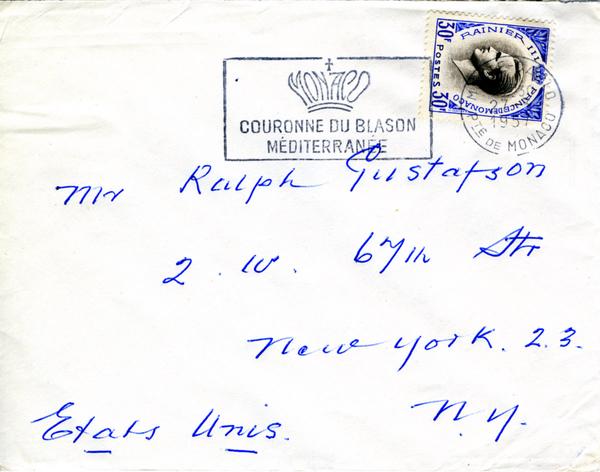 MONACO
COURONNE DU BLASON
MÉDITERRANÉE
30F POSTES 30F
RAINIER III
PRINCE DE MONACO
1957
PTÉ DE MONACO
Mr Ralph Gustafson
2. W. 67th Str
New York. 23.
N.Y.
Etats Unis.